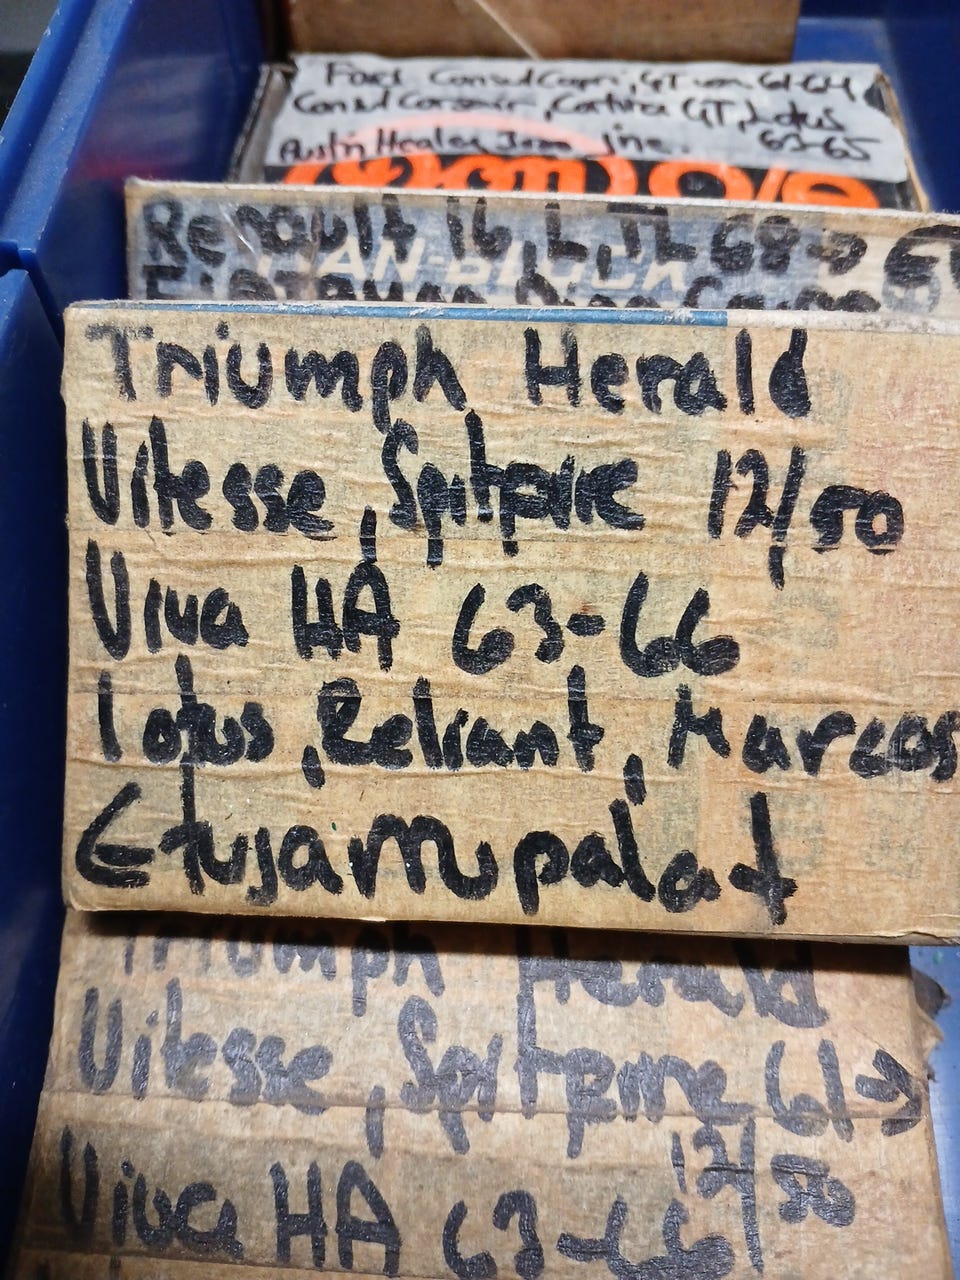 Ford Consul Capri, GT 61-64
Consul Corsair, Cortina GT, Lotus
Austin Healey 63-65
Renault 16, L, TL 68->
Triumph Herald
Vitesse, Spitfire 12/50
Viva HA 63-66
Lotus, Reliant, Marcos
Etujarrupalat
Triumph Herald
Vitesse, Spitfire 61->
12/50
Viva HA 63-66